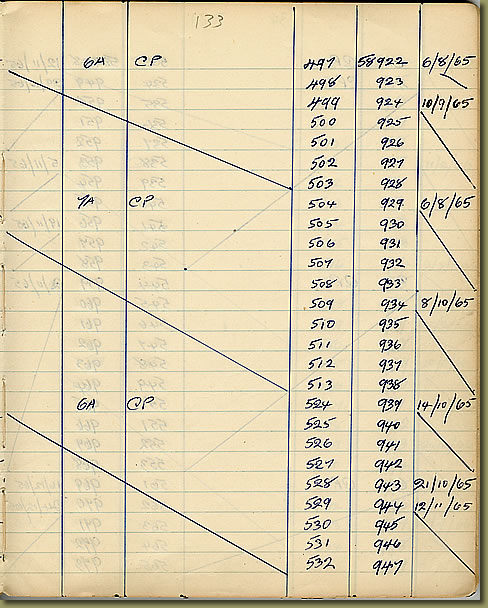 133
6A CP 497 58922 6/8/65
498 923
499 924 10/9/65
500 925
501 926
502 927
503 928
7A CP 504 929 6/8/65
505 930
506 931
507 932
508 933
509 934 8/10/65
510 935
511 936
512 937
513 938
6A CP 524 939 14/10/65
525 940
526 941
527 942
528 943 21/10/65
529 944 12/11/65
530 945
531 946
532 947